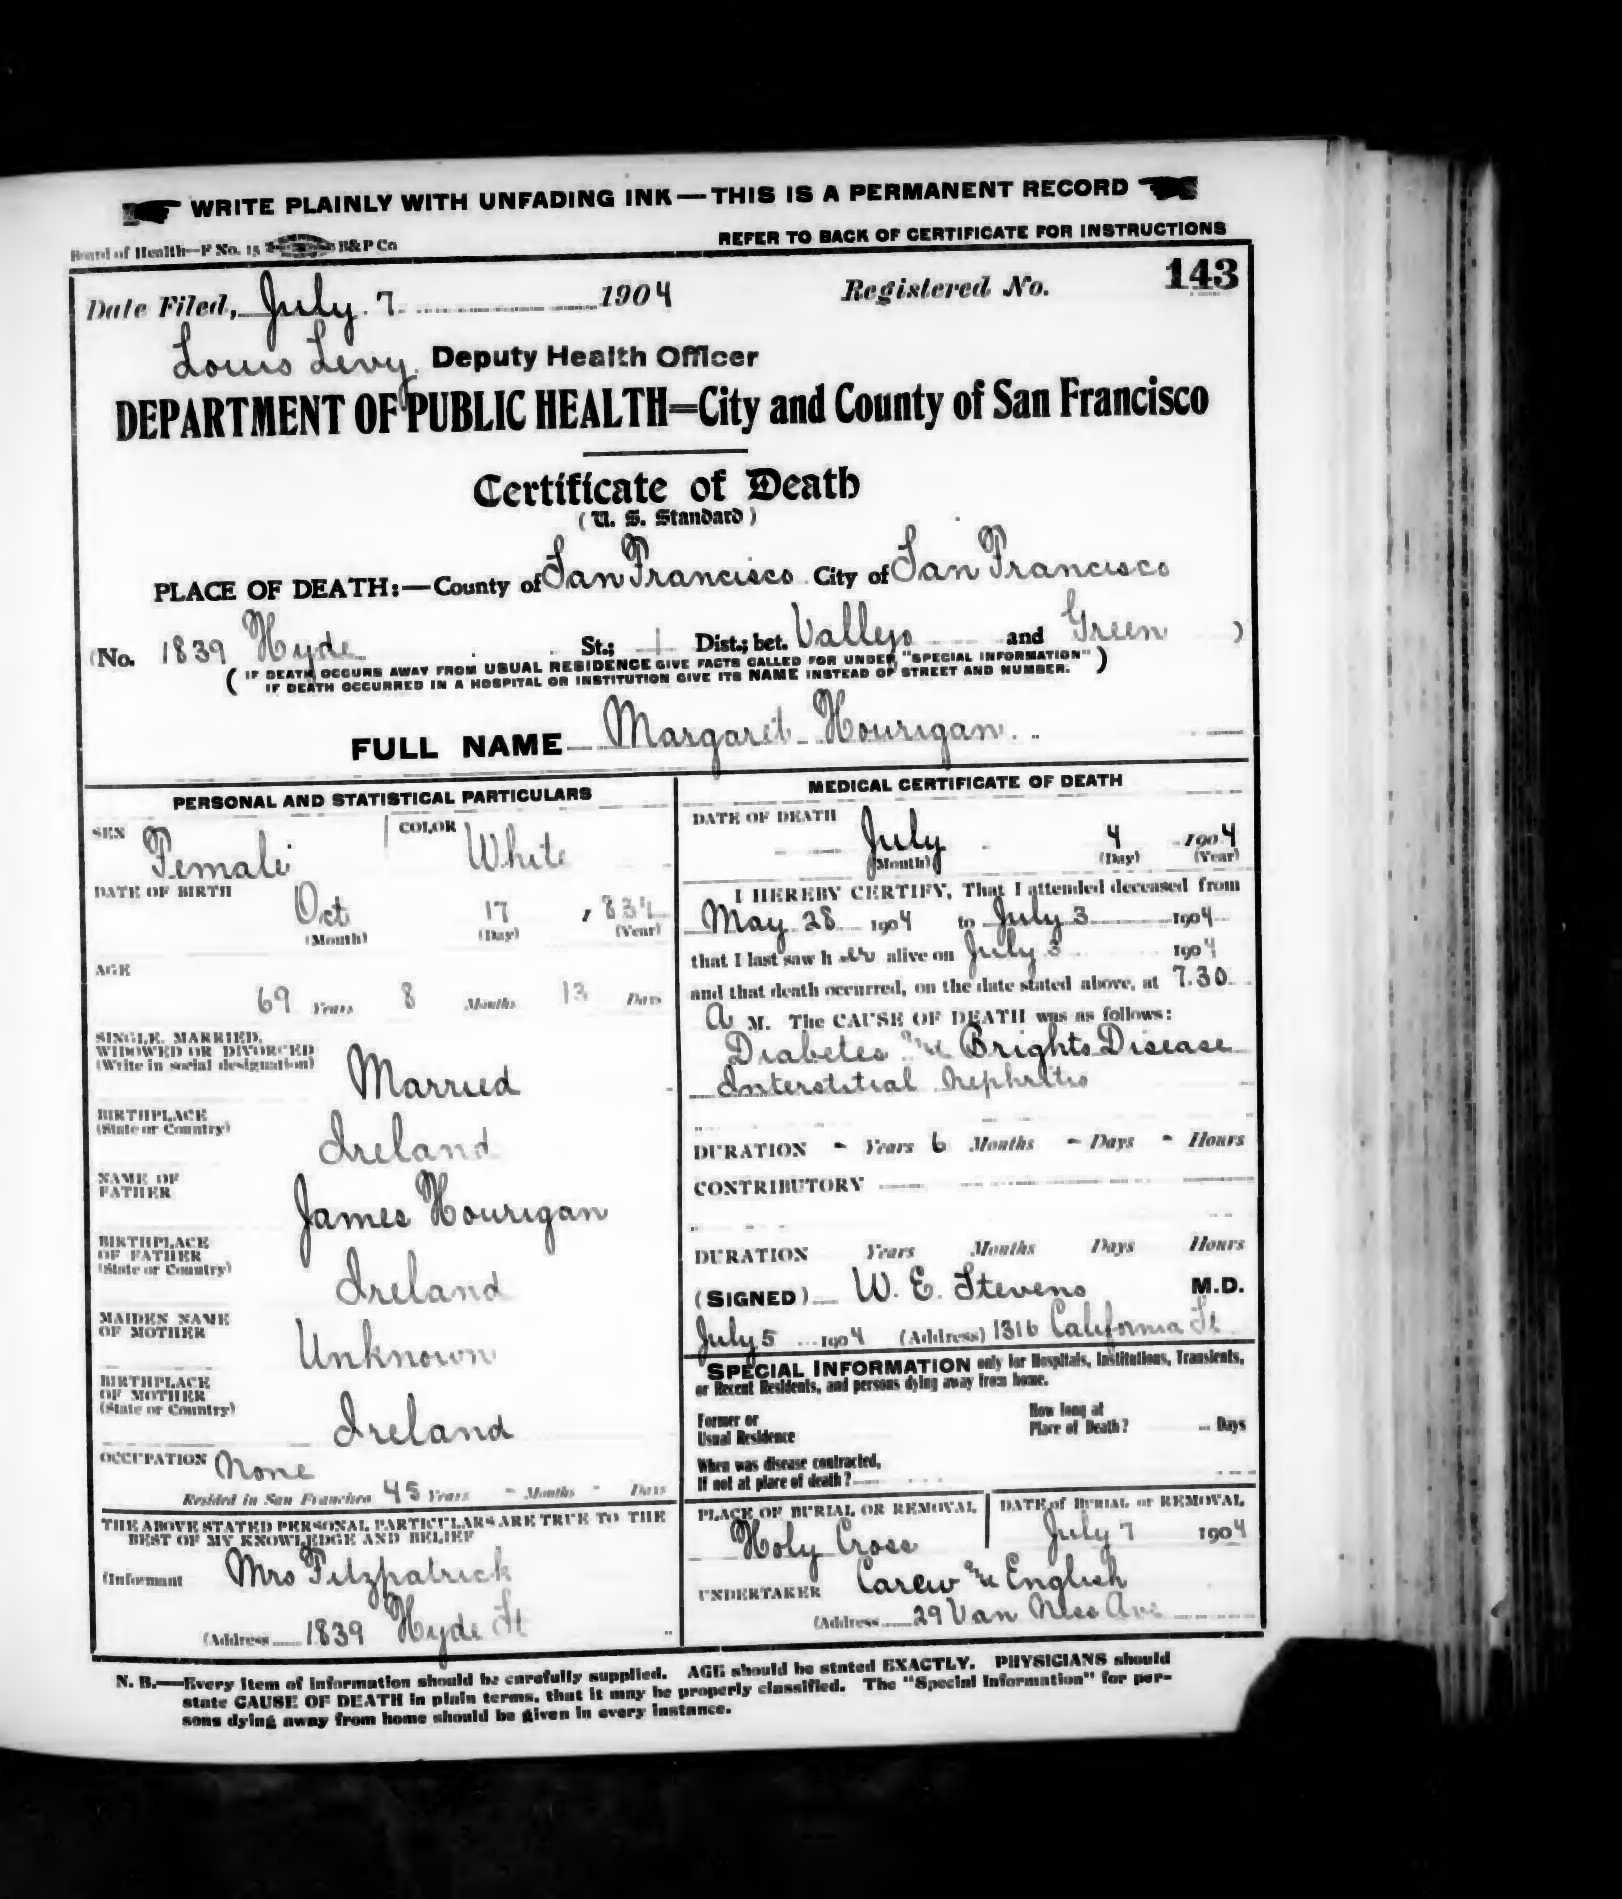 WRITE PLAINLY WITH UNFADING INK—THIS IS A PERMANENT RECORD
Board of Health—F No. 15 B&P Co
REFER TO BACK OF CERTIFICATE FOR INSTRUCTIONS
Date Filed, July 7 1904 Registered No. 143
Louis Levy, Deputy Health Officer
DEPARTMENT OF PUBLIC HEALTH—City and County of San Francisco
Certificate of Death
(U. S. Standard)
PLACE OF DEATH:—County of San Francisco City of San Francisco
(No. 1839 Hyde St.; 1 Dist.; bet. Vallejo and Green )
( IF DEATH OCCURS AWAY FROM USUAL RESIDENCE GIVE FACTS CALLED FOR UNDER "SPECIAL INFORMATION" )
IF DEATH OCCURRED IN A HOSPITAL OR INSTITUTION GIVE ITS NAME INSTEAD OF STREET AND NUMBER.
FULL NAME Margaret Hourigan
PERSONAL AND STATISTICAL PARTICULARS
SEX Female COLOR White
DATE OF BIRTH Oct 17 , 834
(Month) (Day) (Year)
AGE
69 Years 8 Months 13 Days
SINGLE, MARRIED,
WIDOWED OR DIVORCED
(Write in social designation) Married
BIRTHPLACE
(State or Country) Ireland
NAME OF
FATHER James Hourigan
BIRTHPLACE
OF FATHER
(State or Country) Ireland
MAIDEN NAME
OF MOTHER Unknown
BIRTHPLACE
OF MOTHER
(State or Country) Ireland
OCCUPATION None
Resided in San Francisco 45 Years - Months - Days
THE ABOVE STATED PERSONAL PARTICULARS ARE TRUE TO THE
BEST OF MY KNOWLEDGE AND BELIEF
(Informant Mrs Fitzpatrick
(Address 1839 Hyde St
MEDICAL CERTIFICATE OF DEATH
DATE OF DEATH
July 4 1904
(Month) (Day) (Year)
I HEREBY CERTIFY, That I attended deceased from
May 28 1904 to July 3 1904
that I last saw her alive on July 3 1904
and that death occurred, on the date stated above, at 7.30
A M. The CAUSE OF DEATH was as follows:
Diabetes and Brights Disease
Interstitial Nephritis
DURATION - Years 6 Months - Days - Hours
CONTRIBUTORY
DURATION Years Months Days Hours
(SIGNED) W. E. Stevens M.D.
July 5 1904 (Address) 1316 California St
SPECIAL INFORMATION only for Hospitals, Institutions, Transients,
or Recent Residents, and persons dying away from home.
Former or
Usual Residence
How long at
Place of Death? Days
When was disease contracted,
If not at place of death?
PLACE OF BURIAL OR REMOVAL
Holy Cross
DATE of BURIAL or REMOVAL
July 7 1904
UNDERTAKER Carew and English
(Address 29 Van Ness Ave
N. B.—Every item of information should be carefully supplied. AGE should be stated EXACTLY. PHYSICIANS should
state CAUSE OF DEATH in plain terms, that it may be properly classified. The "Special Information" for per-
sons dying away from home should be given in every instance.